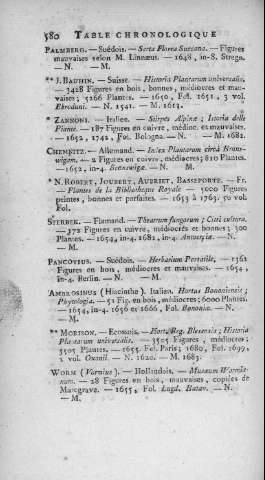 580 TABLE CHRONOLOGIQUE
PALMBERG. — Suédois. — Serta Florea Suecana. — Figures
mauvaises selon M. Linnæus. — 1648, in-8. Stregn.
N. — M.
** J. BAUHIN. — Suisse. — Historia Plantarum universalis.
— 3428 Figures en bois, bonnes, médiocres et mau-
vaises; 5266 Plantes. — 1650, Fol. 1651, 3 vol.
Ebroduni. — N. 1541. — M. 1613.
* ZANNONI. — Italien. — Stirpes Alpinæ; Istoria delle
Piante. — 187 Figures en cuivre, médioc. et mauvaises.
— 1652, 1742, Fol. Bologna. — N. — M. 1682.
CHEMNITZ. — Allemand. — Index Plantarum circà Bruns-
wigam. — 2 Figures en cuivre, médiocres; 810 Plantes.
— 1652, in-4. Brunswigæ. — N. — M.
* N. ROBERT, JOUBERT, AUBRIET, BASSEPORTE. — Fr.
— Plantes de la Bibliotheque Royale — 5000 Figures
peintes, bonnes et parfaites. — 1653 à 1765. 50 vol.
Fol.
STERBEK. — Flamand. — Theatrum fungorum; Citri cultura.
— 372 Figures en cuivre, médiocres et bonnes; 300
Plantes. — 1654, in-4. 1682, in-4. Antuerpiæ — N. —
M.
PANCOVIUS. — Suédois. — Herbarium Portatile. — 1362
Figures en bois, médiocres et mauvaises. — 1654,
in-4. Berlin. — N. — M.
AMBROSINUS (Hiacinthe). Italien. Hortus Bononiensis;
Phytologia. — 51 Fig. en bois, médiocres; 6000 Plantes.
— 1654, in-4. 1656 et 1666, Fol. Bononiæ. — N. —
M.
** MORISON. — Ecossois. — Hort. Reg. Blesensis; Historia
Plantarum universalis. — 3505 Figures, médiocres;
5505 Plantes. — 1655. Fol. Paris; 1680, Fol. 1699,
2 vol. Oxonii. — N. 1620. — M. 1683.
WORM (Vormius). — Hollandois. — Museum Wormia-
num. — 28 Figures en bois, mauvaises, copiées de
Marcgrave. — 1655, Fol. Lugd. Batav. — N.
— M.